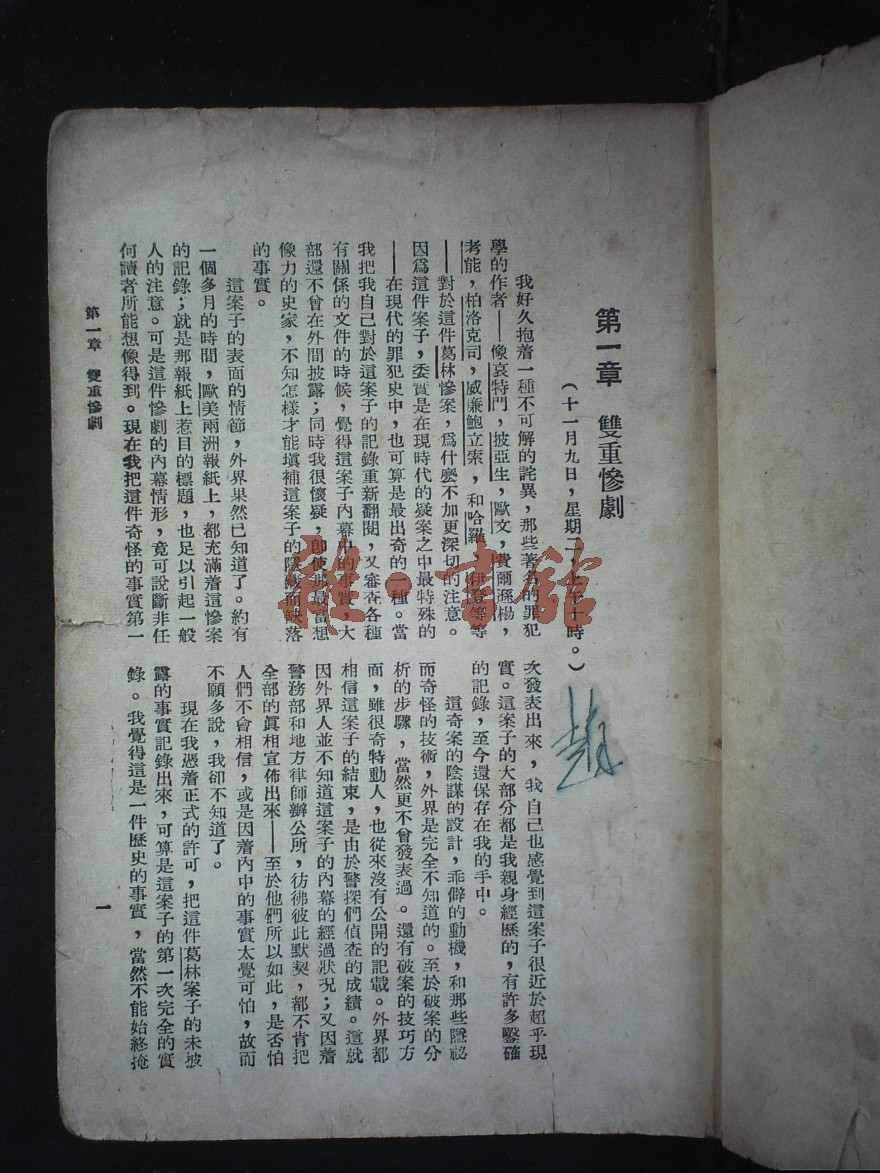 第一章　雙重慘劇
（十一月九日，星期二，上午十時。）
我好久抱着一種不可解的詫異，那些著名的罪犯
學的作者——像哀特門，披亞生，歐文，費爾孫楊，
考能，柏洛克司，威廉鮑立索，和哈羅伊登等等
——對於這件葛林慘案，爲什麼不加更深切的注意。
因爲這件案子，委實是在現時代的疑案之中最特殊的
——在現代的罪犯史中，也可算是最出奇的一種。當
我把我自己對於這案子的記錄重新翻閱，又審查各種
有關係的文件的時候，覺得這案子內幕中的事實，大
部還不曾在外間披露；同時我很懷疑，卽使那最富想
像力的史家，不知怎樣才能塡補這案子的隱蔽而缺落
的事實。
這案子的表面的情節，外界果然已知道了。約有
一個多月的時間，歐美兩洲報紙上，都充滿着這慘案
的記錄；就是那報紙上惹目的標題，也足以引起一般
人的注意。可是這件慘劇的內幕情形，竟可說斷非任
何讀者所能想像得到。現在我把這件奇怪的事實第一
次發表出來，我自己也感覺到這案子很近於超乎現
實。這案子的大部分都是我親身經歷的，有許多鑿確
的記錄，至今還保存在我的手中。
這奇案的陰謀的設計，乖僻的動機，和那些隱祕
而奇怪的技術，外界是完全不知道的。至於破案的分
析的步驟，當然更不曾發表過。還有破案的技巧方
面，雖很奇特動人，也從來沒有公開的記載。外界都
相信這案子的結束，是由於警探們偵查的成績。這就
因外界人並不知道這案子的內幕的經過狀況；又因着
警務部和地方律師辦公所，彷彿彼此默契，都不肯把
全部的眞相宣佈出來——至於他們所以如此，是否怕
人們不會相信，或是因着內中的事實太覺可怕，故而
不願多說，我卻不知道了。
現在我憑着正式的許可，把這件葛林案子的未披
露的事實記錄出來，可算是這案子的第一次完全的實
錄。我覺得這是一件歷史的事實，當然不能始終掩
第一章　雙重慘劇
一
雅·書館